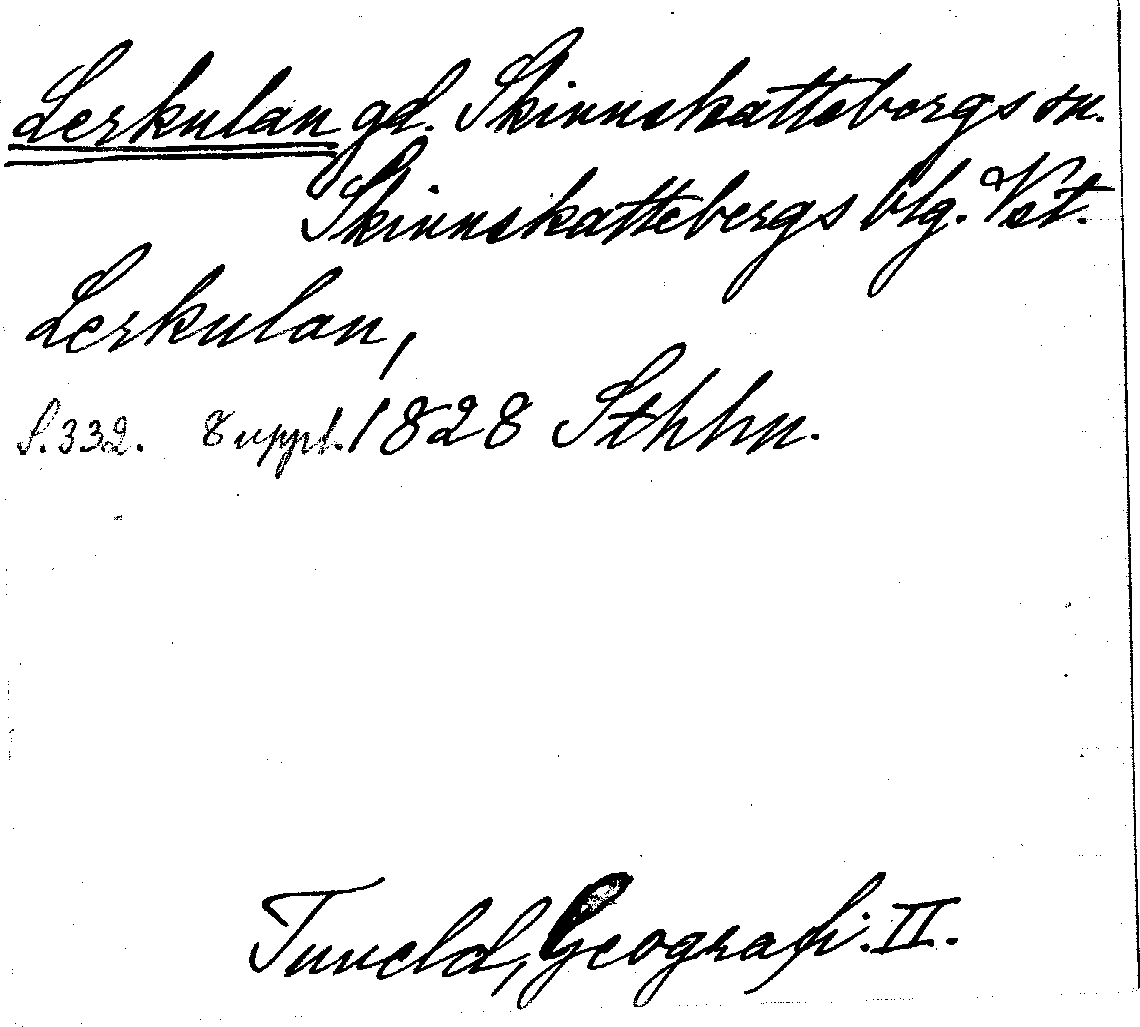 Lerkulan gd. Skinnskattebergs sn.
Skinnskattebergs blg. Vst.
Lerkulan,
S. 332. 8 uppl. 1828 Sthhn.
Tuneld, Geografi. II.